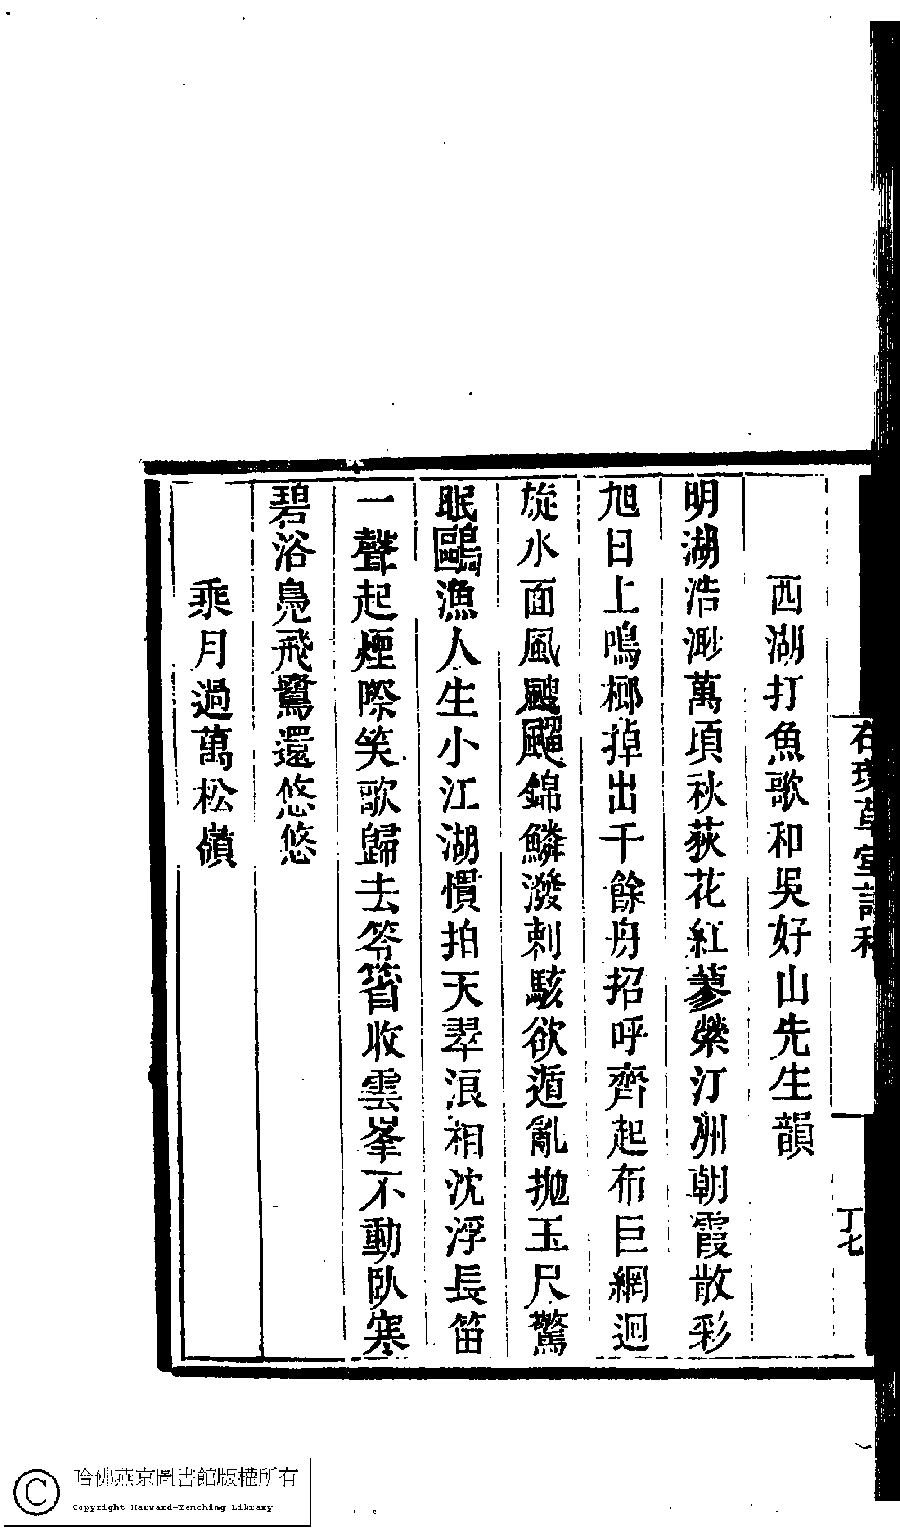 西湖打魚歌和吳好山先生韻
明湖浩渺萬頃秋荻花紅蓼縈汀洲朝霞散彩
旭日上鳴榔掉出千餘舟招呼齊起布巨網迴
旋水面風颼飀錦鱗潑剌駭欲遁亂拋玉尺驚
眠鷗漁人生小江湖慣拍天翠浪相沈浮長笛
一聲起煙際笑歌歸去笭箵收雲峯不動臥寒
碧浴鳧飛鷺還悠悠
乘月過萬松嶺
草堂詩
哈佛燕京圖書館版權所有
Copyright Harvard-Yenching Library